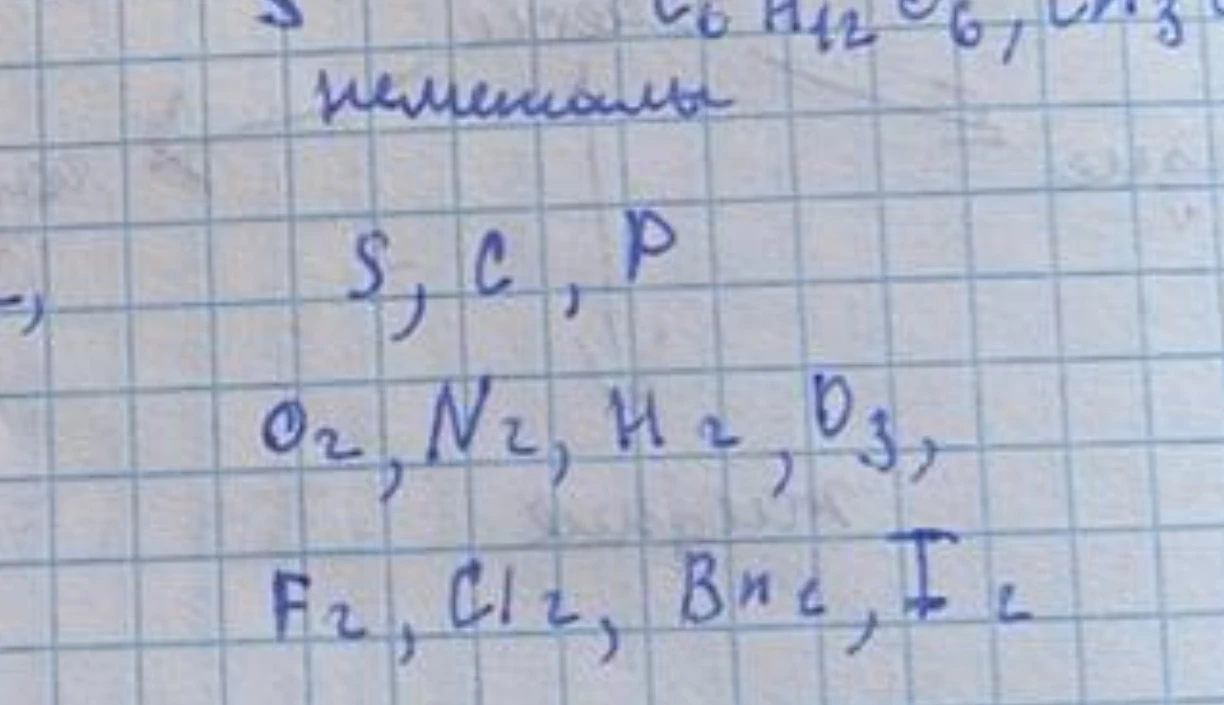 C₆H₁₂O₆, CH₃
неметалы
S, C, P
O₂, N₂, H₂, O₃,
F₂, Cl₂, Br₂, I₂